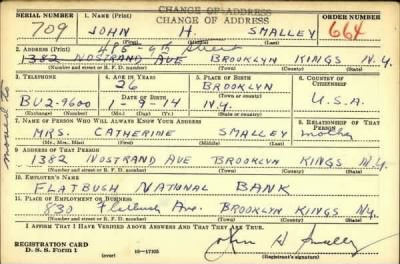 CHANGE OF ADDRESS
CHANGE OF ADDRESS
SERIAL NUMBER 1. NAME (Print) ORDER NUMBER
709 JOHN H. SMALLEY 664
(First) (Middle) (Last)
2. ADDRESS (Print) 415-9th Street
1382 NOSTRAND AVE BROOKLYN KINGS N.Y.
(Number and street or R. F. D. number) (Town) (County) (State)
3. TELEPHONE 4. AGE IN YEARS 5. PLACE OF BIRTH 6. COUNTRY OF CITIZENSHIP
26 BROOKLYN
DATE OF BIRTH (Town or county)
BU2-9600 1-9-14 N.Y. U.S.A.
(Exchange) (Number) (Mo.) (Day) (Yr.) (State or country)
7. NAME OF PERSON WHO WILL ALWAYS KNOW YOUR ADDRESS 8. RELATIONSHIP OF THAT PERSON
MRS. CATHERINE SMALLEY mother
(Mr., Mrs., Miss) (First) (Middle) (Last)
9. ADDRESS OF THAT PERSON
1382 NOSTRAND AVE BROOKLYN KINGS N.Y.
(Number and street or R. F. D. number) (Town) (County) (State)
10. EMPLOYER'S NAME
FLATBUSH NATIONAL BANK
11. PLACE OF EMPLOYMENT OR BUSINESS
830 Flatbush Ave. BROOKLYN KINGS N.Y.
(Number and street or R. F. D. number) (Town) (County) (State)
I AFFIRM THAT I HAVE VERIFIED ABOVE ANSWERS AND THAT THEY ARE TRUE.
REGISTRATION CARD
D. S. S. Form 1 (over) 16—17105 John H Smalley
moved to